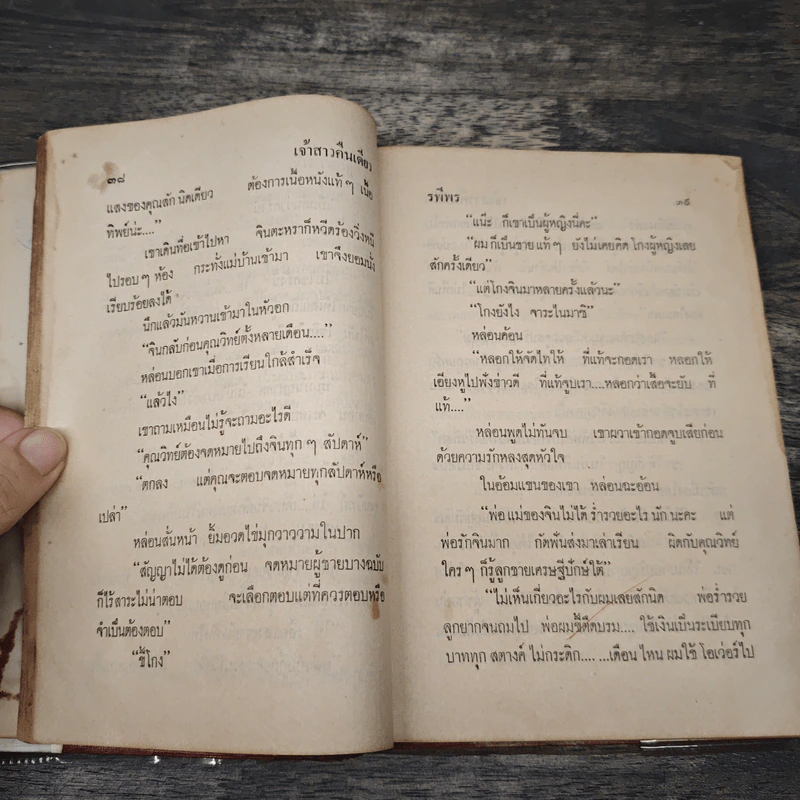 เจ้าสาวคืนเดียว
๓๘
แสงของคุณสัก นิดเดียว ต้องการเนื้อหนังแท้ ๆ เนื้อ
ทิพย์น่ะ....”
เขาเดินทื่อเข้าไปหา จินตะหราก็หวีดร้องวิ่งหนี
ไปรอบ ๆ ห้อง กระทั่งแม่บ้านเข้ามา เขาจึงยอมนั่ง
เรียบร้อยลงได้
นึกแล้วมันหวานเข้ามาในหัวอก
“จินกลับก่อนคุณวิทย์ตั้งหลายเดือน....”
หล่อนบอกเขาเมื่อการเรียนใกล้สำเร็จ
“แล้วไง”
เขาถามเหมือนไม่รู้จะถามอะไรดี
“คุณวิทย์ต้องจดหมายไปถึงจินทุก ๆ สัปดาห์”
“ตกลง แต่คุณจะตอบจดหมายทุกสัปดาห์หรือ
เปล่า”
หล่อนสั่นหน้า ยิ้มอวดไข่มุกวาววามในปาก
“สัญญาไม่ได้ต้องดูก่อน จดหมายผู้ชายบางฉบับ
ก็ไร้สาระไม่น่าตอบ จะเลือกตอบแต่ที่ควรตอบหรือ
จำเป็นต้องตอบ”
“ขี้โกง”
รพีพร
๓๙
“แน๊ะ ก็เขาเป็นผู้หญิงนี่คะ”
“ผม ก็เป็นชาย แท้ ๆ ยังไม่เคยคิด โกงผู้หญิงเลย
สักครั้งเดียว”
“แต่โกงจินมาหลายครั้งแล้วนะ”
“โกงยังไง จาระไนมาซิ”
หล่อนค้อน
“หลอกให้จัดไทให้ ที่แท้จะกอดเรา หลอกให้
เอียงหูไปฟังข่าวดี ที่แท้จูบเรา....หลอกว่าเสื้อจะยับ ที่
แท้....”
หล่อนพูดไม่ทันจบ เขาผวาเข้ากอดจูบเสียก่อน
ด้วยความรักหลงสุดหัวใจ
ในอ้อมแขนของเขา หล่อนฉะอ้อน
“พ่อ แม่ของจินไม่ได้ ร่ำรวยอะไร นัก นะคะ แต่
พ่อรักจินมาก กัดฟันส่งมาเล่าเรียน ผิดกับคุณวิทย์
ใคร ๆ ก็รู้ลูกชายเศรษฐีปักษ์ใต้”
“ไม่เห็นเกี่ยวอะไรกับผมเลยสักนิด พ่อร่ำรวย
ลูกยากจนถมไป พ่อผมขี้ตืดบรม.... ใช้เงินเป็นระเบียบทุก
บาททุก สตางค์ ไม่กระดิก.... ...เดือน ไหน ผมใช้ โอเว่อร์ไป